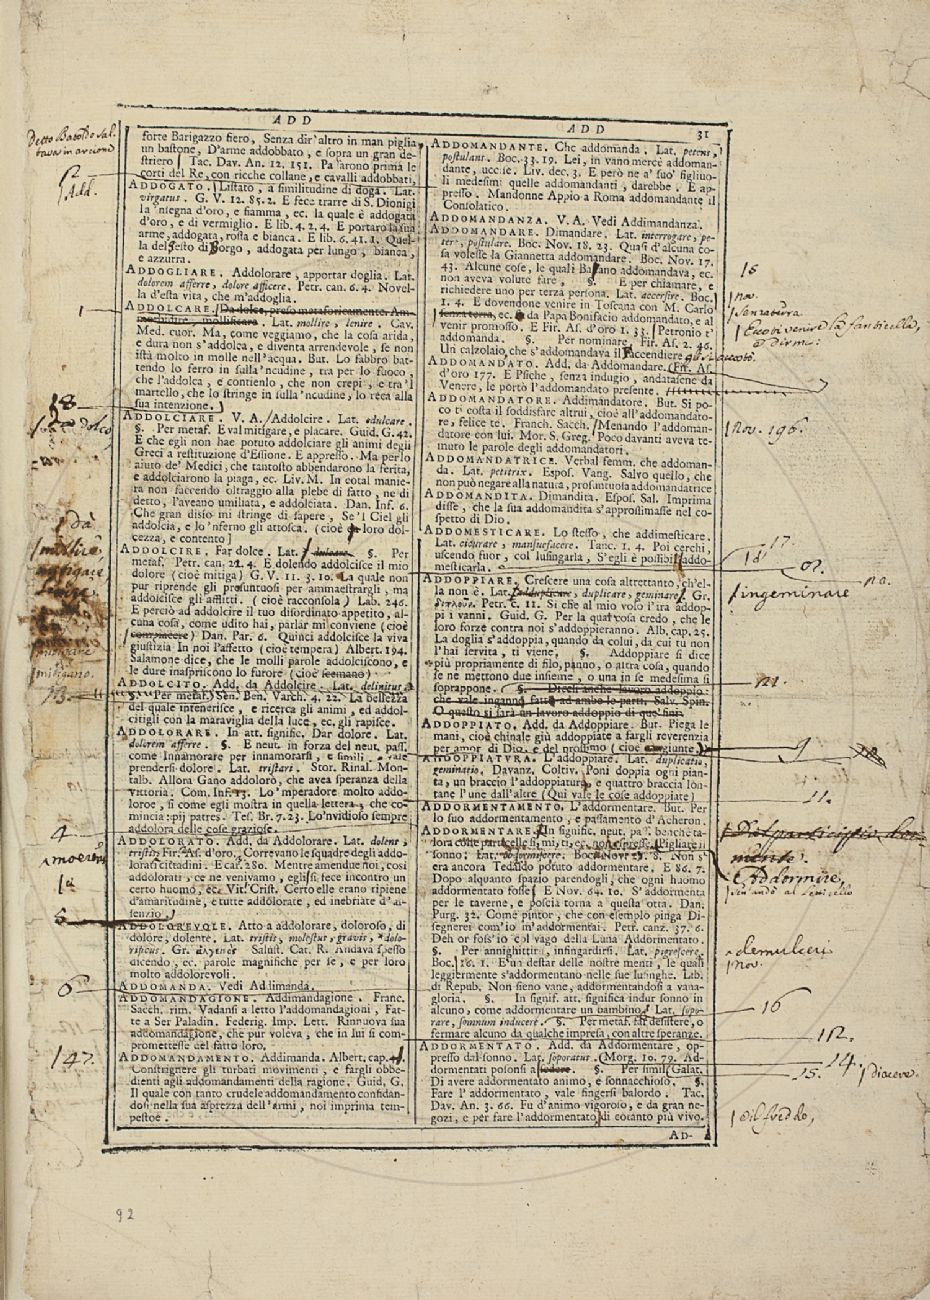 ADD
ADD
31
forte Barigazzo fiero, Senza dir'altro in man piglia
un bastone, D'arme addobbato, e sopra un gran de-
striero Tac. Dav. An. 12. 151. Pararono prima le
corti del Re, con ricche collane, e cavalli addobbati,
ADDOGATO. Listato, a similitudine di doga. Lat.
virgatus. G. V. 12. 85. 2. E fece trarre di S. Dionigi
la 'nsegna d'oro, e fiamma, ec. la quale è addogata
d'oro, e di vermiglio. E lib. 4. 2. 4. E portaro la sua
arme, addogata, rossa e bianca. E lib. 6. 41. 1. Quel-
la del sesto di Borgo, addogata per lungo, bianca,
e azzurra.
ADDOGLIARE. Addolorare, apportar doglia. Lat.
dolorem afferre, dolore afficere. Petr. can. 6. 4. Novel-
la d'esta vita, che m'addoglia.
ADDOLCARE. Da dolce, preso metaforicamente. Am-
morbidire, mollificare. Lat. mollire, lenire. Cav.
Med. cuor. Ma, come veggiamo, che la cosa arida,
e dura non s'addolca, e diventa arrendevole, se non
istà molto in molle nell'acqua. But. Lo fabbro bat-
tendo lo ferro in sulla 'ncudine, tra per lo fuoco,
che l'addolca, e contienlo, che non crepi, e tra 'l
martello, che lo stringe in sulla 'ncudine, lo reca alla
sua intenzione.
ADDOLCIARE. V. A. Addolcire. Lat. edulcare.
§. Per metaf. E val mitigare, e placare. Guid. G. 42.
E che egli non hae potuto addolciare gli animi degli
Greci a restituzione d'Essione. E appresso. Ma per lo
aiuto de' Medici, che tantosto abbendarono la ferita,
e addolciarono la piaga, ec. Liv. M. In cotal manie-
ra non faccendo oltraggio alla plebe di fatto, ne di
detto, l'aveano umiliata, e addolciata. Dan. Inf. 6.
Che gran disio mi stringe di sapere, Se 'l Ciel gli
addolcia, e lo 'nferno gli attosca. (cioè fa loro dol-
cezza, e contento
ADDOLCIRE. Far dolce. Lat. dulcare. §. Per
metaf. Petr. can. 22. 4. E dolendo addolcisce il mio
dolore (cioè mitiga) G. V. 11. 3. 10. La quale non
pur riprende gli prosuntuosi per ammaestrargli, ma
addolcisce gli afflitti. (cioè racconsola) Lab. 246.
E perciò ad addolcire il tuo disordinato appetito, al-
cuna cosa, come udito hai, parlar mi conviene (cioè
compiacere) Dan. Par. 6. Quinci addolcisce la viva
giustizia In noi l'affetto (cioè tempera) Albert. 194.
Salamone dice, che le molli parole addolciscono, e
le dure inaspriscono lo furore (cioè scemano)
ADDOLCITO. Add. da Addolcire. Lat. delinitus
§. Per metaf. Sen. Ben. Varch. 4. 22. La bellezza
del quale intenerisce, e ricerca gli animi, ed addol-
citigli con la maraviglia della luce, ec. gli rapisce.
ADDOLORARE. In att. signific. Dar dolore. Lat.
dolorem afferre. §. E neut. in forza del neut. pass.
come Innamorare per innamorarsi, e simili, vale
prendersi dolore. Lat. tristari. Stor. Rinal. Mon-
talb. Allora Gano addolorò, che avea speranza della
vittoria. Com. Inf. 13. Lo 'mperadore molto addo-
loroe, sì come egli mostra in quella lettera, che co-
mincia: pij patres. Tes. Br. 7. 23. Lo 'nvidioso sempre
addolora delle cose graziose.
ADDOLORATO. Add. da Addolorare. Lat. dolens,
tristis. Fir. As. d'oro. Correvano le squadre degli addo-
lorati cittadini. E car. 280. Mentre amendue noi, così
addolorati, ce ne venivamo, egli si fece incontro un
certo huomo, ec. Vit. Crist. Certo elle erano ripiene
d'amaritudine, e tutte addolorate, ed inebriate d'as-
senzio.
ADDOLOREVOLE. Atto a addolorare, doloroso, di
dolore, dolente. Lat. tristis, molestus, gravis, dolo-
rificus. Gr. Salust. Cat. R. Andava spesso
dicendo, ec. parole magnifiche per se, e per loro
molto addolorevoli.
ADDOMANDA. Vedi Addimanda.
ADDOMANDAGIONE. Addimandagione. Franc.
Sacch. rim. Vadansi a letto l'addomandagioni, Fat-
te a Ser Paladin. Federig. Imp. Lett. Rinnuova sua
addomandagione, che pur voleva, che in lui si com-
promettesse del fatto loro.
ADDOMANDAMENTO. Addimanda. Albert. cap. 41.
Constrignere gli turbati movimenti, e fargli obbe-
dienti agli addomandamenti della ragione. Guid. G.
Il quale con tanto crudele addomandamento confidan-
dosi nella sua asprezza dell'armi, noi imprima tem-
pestoe.
ADDOMANDANTE. Che addomanda. Lat. petens,
postulans. Boc. 33. 19. Lei, in vano mercè addoman-
dante, uccise. Liv. dec. 3. E però ne a' suo' figliuo-
li medesimi quelle addomandanti, darebbe. E ap-
presso. Mandonne Appio a Roma addomandante il
Consolatico.
ADDOMANDANZA. V. A. Vedi Addimandanza.
ADDOMANDARE. Dimandare. Lat. interrogare, pe-
tere, postulare. Boc. Nov. 18. 23. Quasi d'alcuna co-
sa volesse la Giannetta addomandare. Boc. Nov. 17.
43. Alcune cose, le quali Bassano addomandava, ec.
non aveva volute fare, §. E per chiamare, e
richiedere uno per terza persona. Lat. accersire. Boc.
1. 4. E dovendone venire in Toscana con M. Carlo
senza terra, ec. e da Papa Bonifacio addomandato, e al
venir promosso. E Fir. As. d'oro 1. 33. Petronio t'
addomanda. §. Per nominare. Fir. As. 2. 46.
Un calzolaio, che s'addomandava il Raccendiere
ADDOMANDATO. Add. da Addomandare. Fir. As.
d'oro 177. E Psiche, senza indugio, andatasene da
Venere, le portò l'addomandato presente.
ADDOMANDATORE. Addimandatore. But. Si po-
co ti costa il soddisfare altrui, cioè all'addomandato-
re, felice te. Franch. Sacch. Menando l'addoman-
datore con lui. Mor. S. Greg. Poco davanti aveva te-
muto le parole degli addomandatori.
ADDOMANDATRICE. Verbal femm. che addoman-
da. Lat. petitrix. Espos. Vang. Salvo quello, che
non può negare alla natura, prosuntuosa addomandatrice
ADDOMANDITA. Dimandita. Espos. Sal. Imprima
disse, che la sua addomandita s'approssimasse nel co-
spetto di Dio.
ADDOMESTICARE. Lo stesso, che addimesticare.
Lat. cicurare, mansuefacere. Tanc. 1. 4. Poi cerchi,
uscendo fuor, col lusingarla, S'egli è possibil addo-
mesticarla.
ADDOPPIARE. Crescere una cosa altrettanto, ch'el-
la non è. Lat. duplicare, geminare. Gr.
Petr. c. 11. Sì che al mio volo l'ira addop-
pi i vanni. Guid. G. Per la qual cosa credo, che le
loro forze contra noi s'addoppieranno. Alb. cap. 25.
La doglia s'addoppia, quando da colui, da cui tu non
l'hai servita, ti viene, §. Addoppiare si dice
più propriamente di filo, panno, o altra cosa, quando
se ne mettono due insieme, o una in se medesima si
soprappone. §. Dicesi anche lavoro addoppio:
che vale inganno fatto ad ambo le parti. Salv. Spin.
O questo si sarà un lavoro addoppio di que' fini.
ADDOPPIATO. Add. da Addoppiare. But. Piega le
mani, cioè chinale giù addoppiate a fargli reverenzia
per amor di Dio, e del prossimo (cioè congiunte)
ADDOPPIATURA. L'addoppiare. Lat. duplicatio,
geminatio. Davanz. Coltiv. Poni doppia ogni pian-
ta, un braccio l'addoppiatura, e quattro braccia lon-
tane l'une dall'altre (Qui vale le cose addoppiate)
ADDORMENTAMENTO. L'addormentare. But. Per
lo suo addormentamento, e passamento d'Acheron.
ADDORMENTARE. In signific. neut. pass. benchè ta-
lora colle particelle si, mi, ti, ec. non espresse. Pigliare
sonno: Lat. Boc. Nov. 23. 8. Non s'
era ancora Tedaldo potuto addormentare. E 86. 7.
Dopo alquanto spazio parendogli, che ogni huomo
addormentato fosse. E Nov. 64. 10. S' addormenta
per le taverne, e poscia torna a questa otta. Dan.
Purg. 32. Come pintor, che con esemplo pinga Di-
segnerei com'io m'addormentai. Petr. canz. 37. 6.
Deh or foss'io col vago della Luna Addormentato.
§. Per annighittirsi, infingardirsi. Lat. pigrescere.
Boc. 16. 1. E un destar delle nostre menti, le quali
leggiermente s'addormentano nelle sue lusinghe. Lib.
di Repub. Non sieno vane, addormentandosi a vana-
gloria. §. In signif. att. significa indur sonno in
alcuno, come addormentare un bambino. Lat. sopo-
rare, somnum inducere. §. Per metaf. far desistere, o
fermare alcuno da qualche impresa, con altre speranze.
ADDORMENTATO. Add. da Addormentare, op-
presso dal sonno. Lat. soporatus. (Morg. 10. 79. Ad-
dormentati posonsi a sedere. §. Per simil. Galat.
Di avere addormentato animo, e sonnacchioso. §.
Fare l'addormentato, vale fingersi balordo. Tac.
Dav. An. 3. 66. Fu d'animo vigoroso, e da gran ne-
gozi, e per fare l'addormentato, di cotanto più vivo.
AD-
2
Add.
1
18
dà
mollire
mitigare
mitigano.
13
4
moerens
5
6
147.
15
nov.
senzaterra
Nov. 196.
17.
18
ingeminare
9
11.
Addormire,
demulceri
nov.
16
12.
14.
15.
giaceva
del freddo,
92